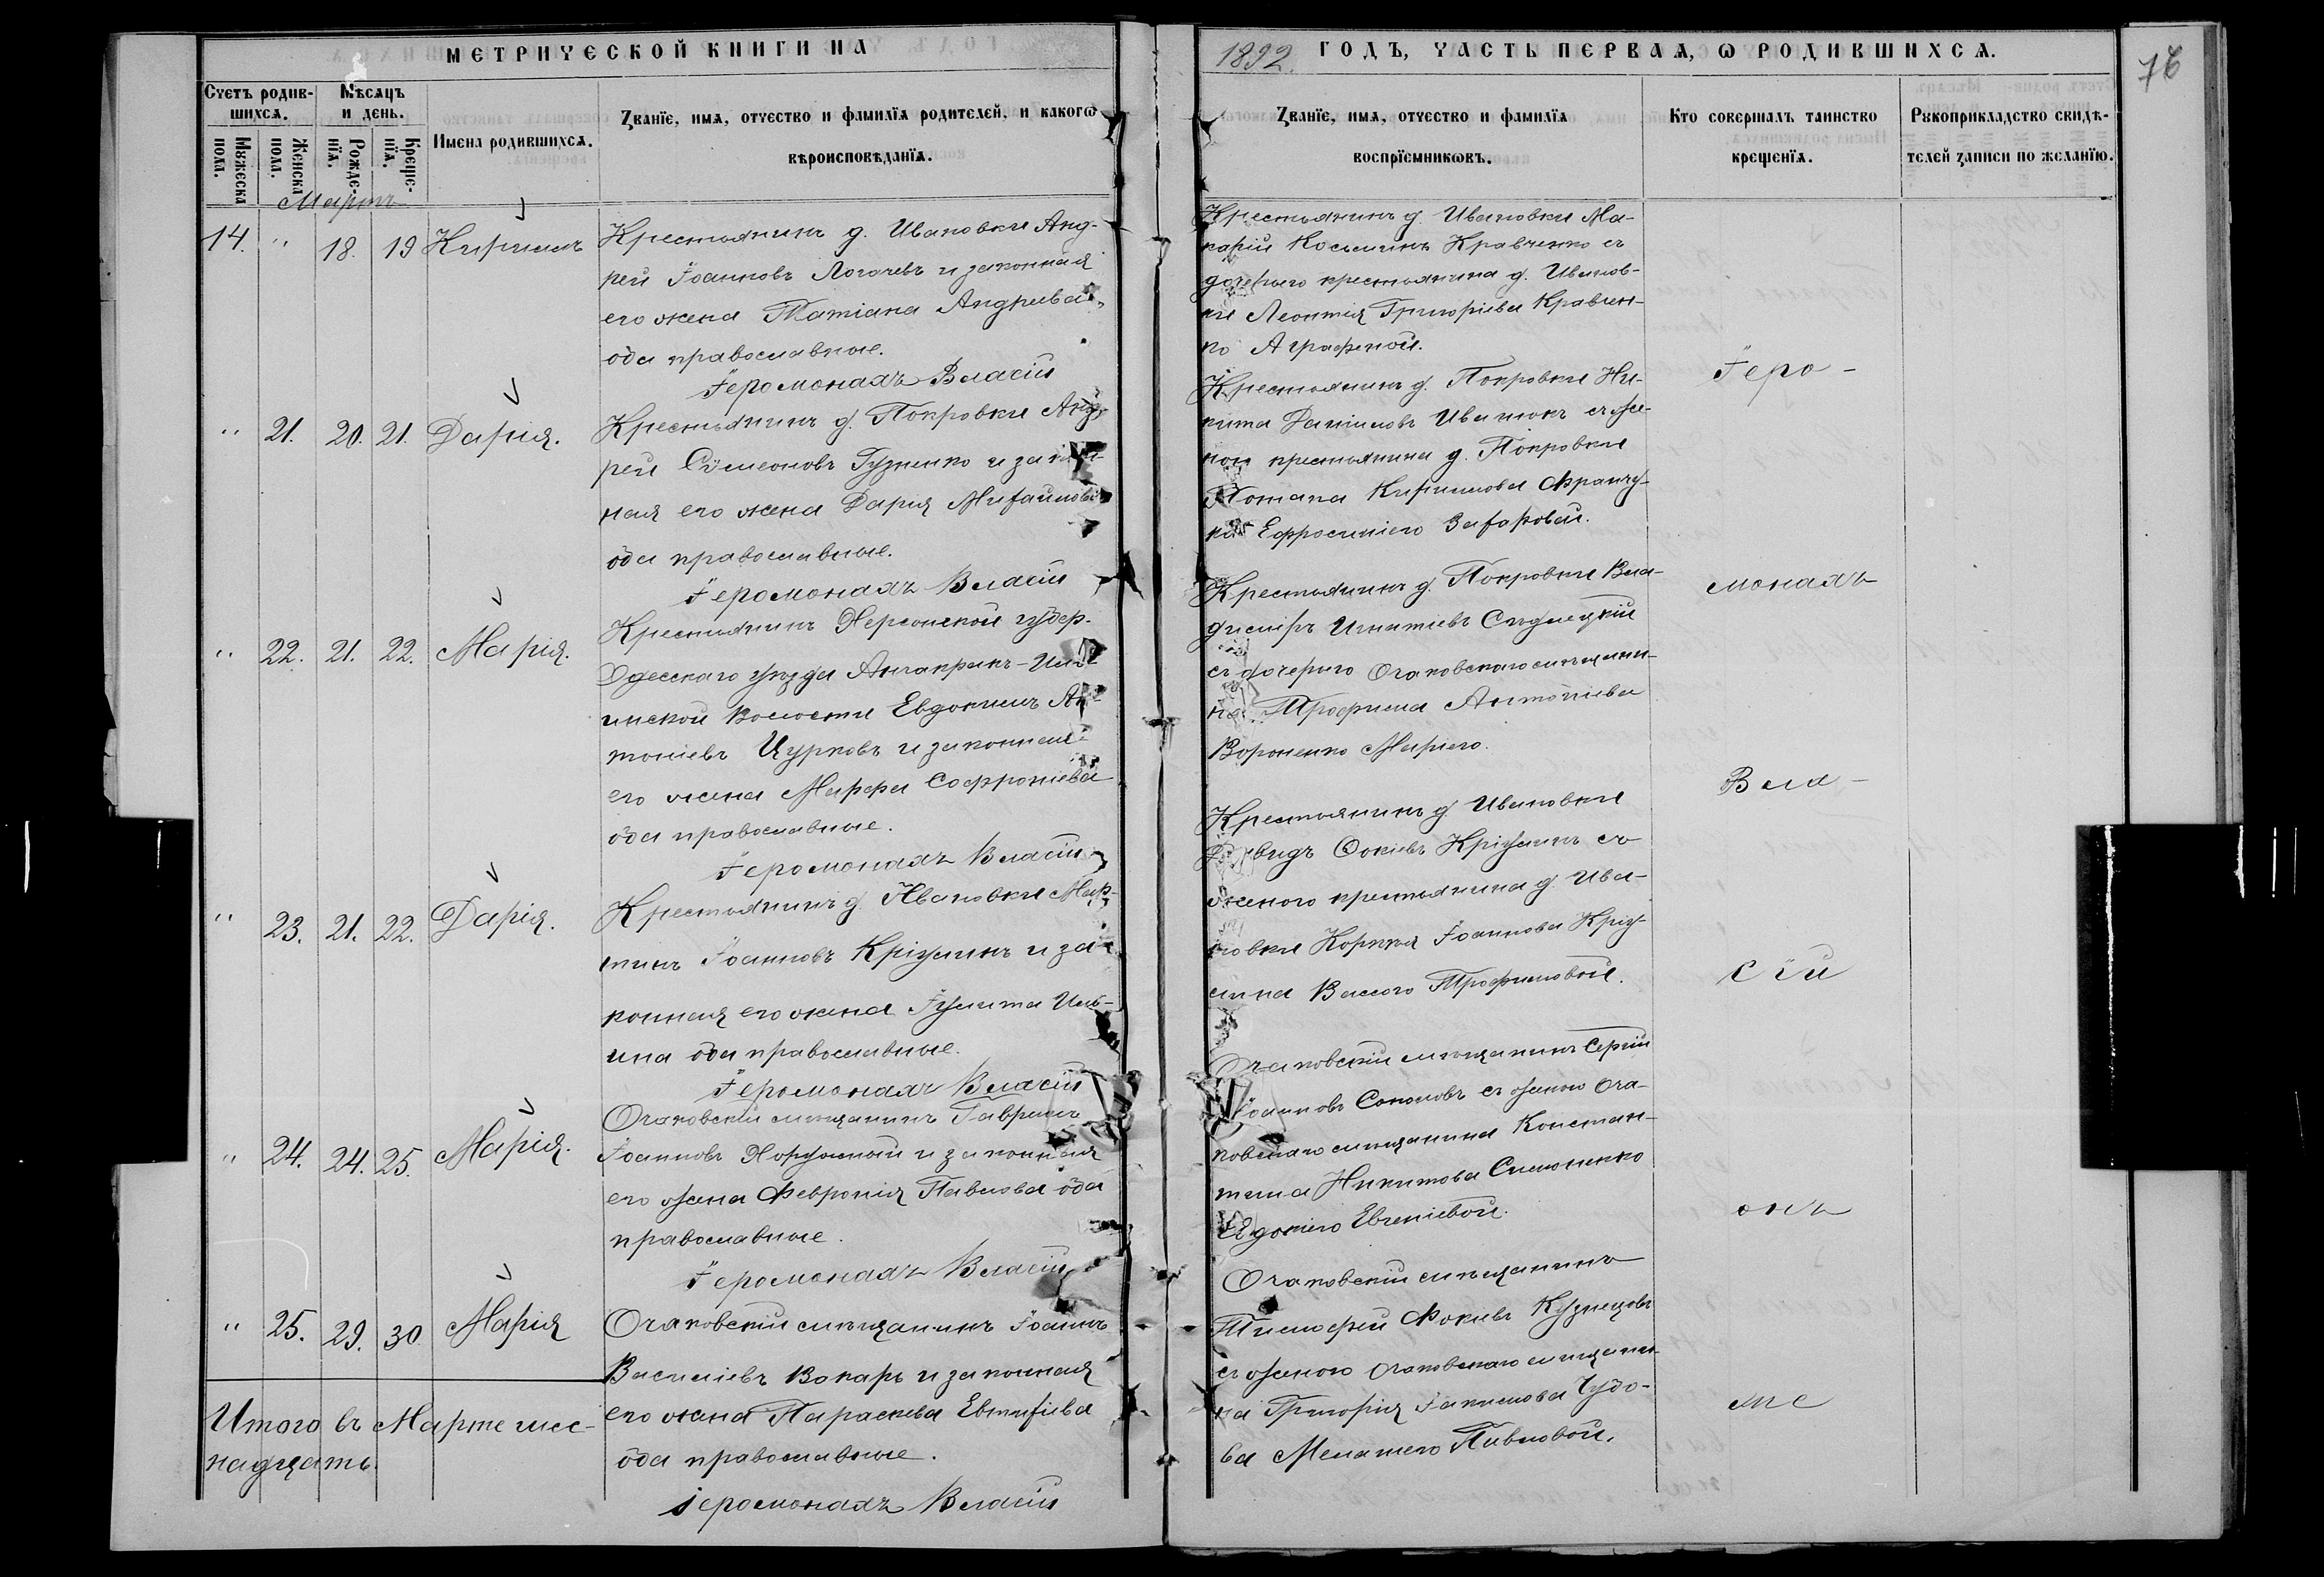 МЕТРИЧЕСКОЙ КНИГИ НА
1892. ГОДЪ, ЧАСТЬ ПЕРВАЯ, Ѡ РОДИВШИХСЯ.
76
Счетъ родив-
шихся.
Мѣсяцъ
и день.
Мужеска
пола.
Женска
пола.
Рожде-
нїя.
Креще-
нїя.
Имена родившихся.
Званїе, имя, отчество и фамилїя родителей, и какогѡ
вѣроисповѣданїя.
Званїе, имя, отчество и фамилїя
воспрїемникѡвъ.
Кто совершалъ таинство
крещенїя.
Рукоприкладство свидѣ-
телей записи по желанїю.
Мартъ
14. " 18. 19 Кириллъ
Крестьянинъ д. Ивановки Анд-
рей Іоанновъ Логачевъ и законная
его жена Татіана Андреева,
оба православные.
Іеромонахъ Власій
Крестьянинъ д. Ивановки Ма-
карій Косьминъ Кравченко съ
дочерью крестьянина д. Иванов-
ки Леонтія Григорьева Кравчен-
ко Аграфеной.
" 21. 20. 21. Дарія.
Крестьянинъ д. Покровки Анд-
рей Сѵмеоновъ Гузненко и закон-
ная его жена Дарія Михаилова
оба православные.
Іеромонахъ Власій
Крестьянинъ д. Покровки Ни-
кита Даніиловъ Иванюкъ съ же-
ною крестьянина д. Покровки
Потапа Кириллова Франчу-
ка Ефросиніею Захаровой.
" 22. 21. 22. Марія.
Крестьянинъ Херсонской губер.
Одесскаго уѣзда Анчакракъ-Иль-
инской волости Евдокимъ Ан-
тоніевъ Цурковъ и законная
его жена Марфа Софроніева
оба православные.
Іеромонахъ Власій
Крестьянинъ д. Покровки Вла-
димиръ Игнатіевъ
съ дочерью Очаковскаго мѣщани-
на Трофима Антоніева
Вороненко Маріею.
" 23. 21. 22. Дарія.
Крестьянинъ д. Ивановки Мар-
тинъ Іоанновъ и за-
конная его жена Іулита Иль-
ина оба православные.
Іеромонахъ Власій
Крестьянинъ д. Ивановки
Давидъ Ѳокіевъ съ
женою крестьянина д. Ива-
новки Корнилія Іоаннова
Вассою Трофимовой.
" 24. 24. 25. Марія.
Очаковскій мѣщанинъ Гавріилъ
Іоанновъ и законная
его жена Февронія Павлова оба
православные.
Іеромонахъ Власій
Очаковскій мѣщанинъ Сергій
Іоанновъ Соколовъ съ женою Оча-
ковскаго мѣщанина Констан-
тина Никитова Симоненко
Евдокіею Евгеніевой.
" 25. 29. 30 Марія
Очаковскій мѣщанинъ Іоаннъ
Василіевъ Вокарь и законная
его жена Параскева Евтихіева
оба православные.
іеромонахъ Власій
Очаковскій мѣщанинъ
Тимофей Фокіевъ Кузнецовъ
съ женою Очаковскаго мѣщани-
на Григорія Іакимова Чудо-
ва Меланіею Павловой.
Іеро-
монахъ
Вла-
сій
онъ
же
Итого въ Мартѣ шес-
надцать.